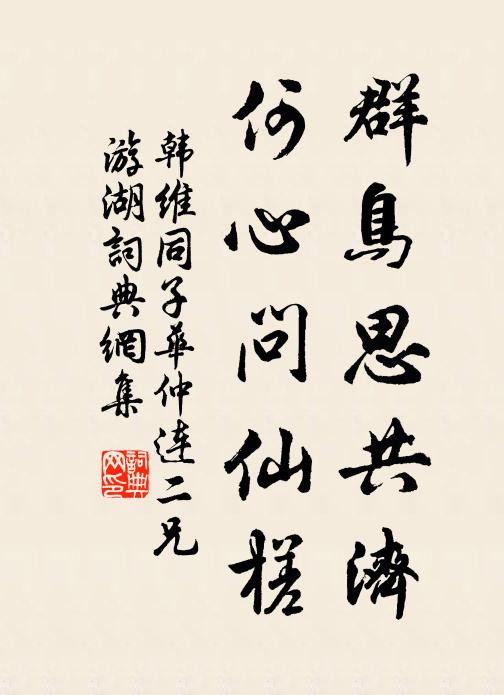 群鳥思共濟
何心問仙槎
韩維同子華仲連二兄
游湖詞典網集
詞典
网印